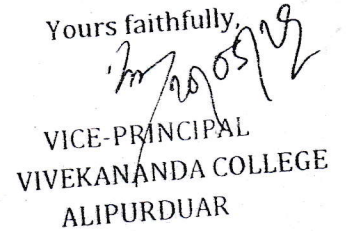 Yours faithfully,
VICE-PRINCIPAL
VIVEKANANDA COLLEGE
ALIPURDUAR